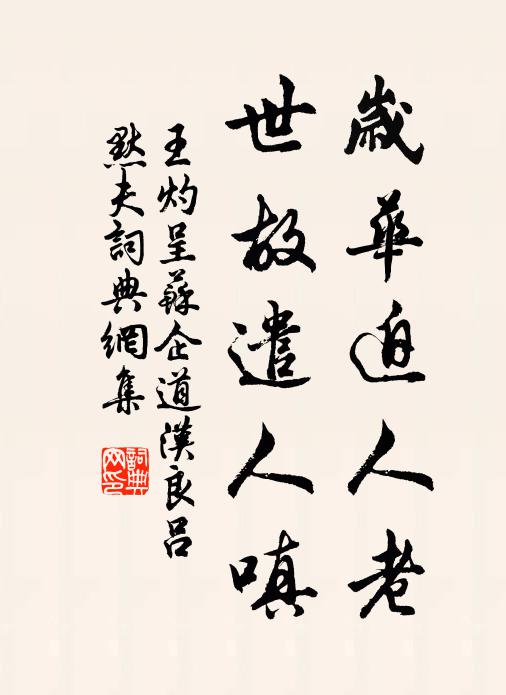 歲華迫人老
世故遣人嗔
王灼呈蘇企道漢良呂
默夫詞典網集
詞典网印